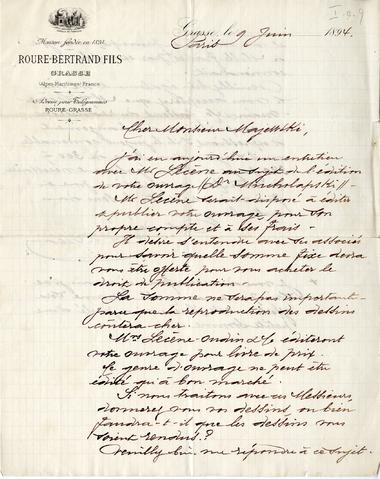 I-0-9
Grasse, le 9 Juin 1894.
Maison fondée en 1820
ROURE-BERTRAND FILS
GRASSE
(Alpes-Maritimes) France
Adresse pour Télégrammes
ROURE-GRASSE
Cher Monsieur Majewski,
J'ai eu aujourd'hui un entretien
avec Mr Lecène au sujet de l'édition
de votre ouvrage (Dr Mucholapski) -
Mr Lecène serait disposé à éditer
& publier votre ouvrage, pour son
propre compte et à ses frais -
Il désire s'entendre avec ses associés
pour savoir quelle somme fixe devra
vous être offerte pour vous acheter le
droit de publication -
La somme ne sera pas importante
parce que la reproduction des dessins
coûtera cher.
Mrs Lecène Oudin & Ce éditeront
votre ouvrage pour livre de prix.
Ce genre d'ouvrage ne peut être
édité qu'à bon marché.
Si nous traitons avec ces Messieurs
donnerez vous vos dessins, ou bien
faudra-t-il que les dessins vous
soient rendus?
Veuillez me répondre à ce sujet.